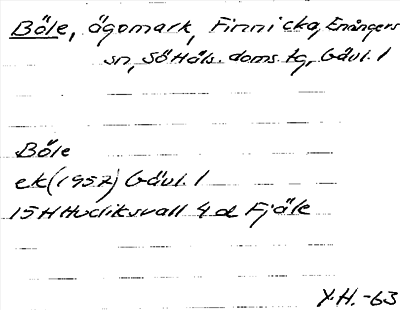 Böle, ägomark, Finnicka, Enångers
sn, Sö Häls. doms. tg, Gävl. l
Böle
ek (1957) Gävl. l
15H Hudiksvall 4 d Fjäle
Y.H. -63